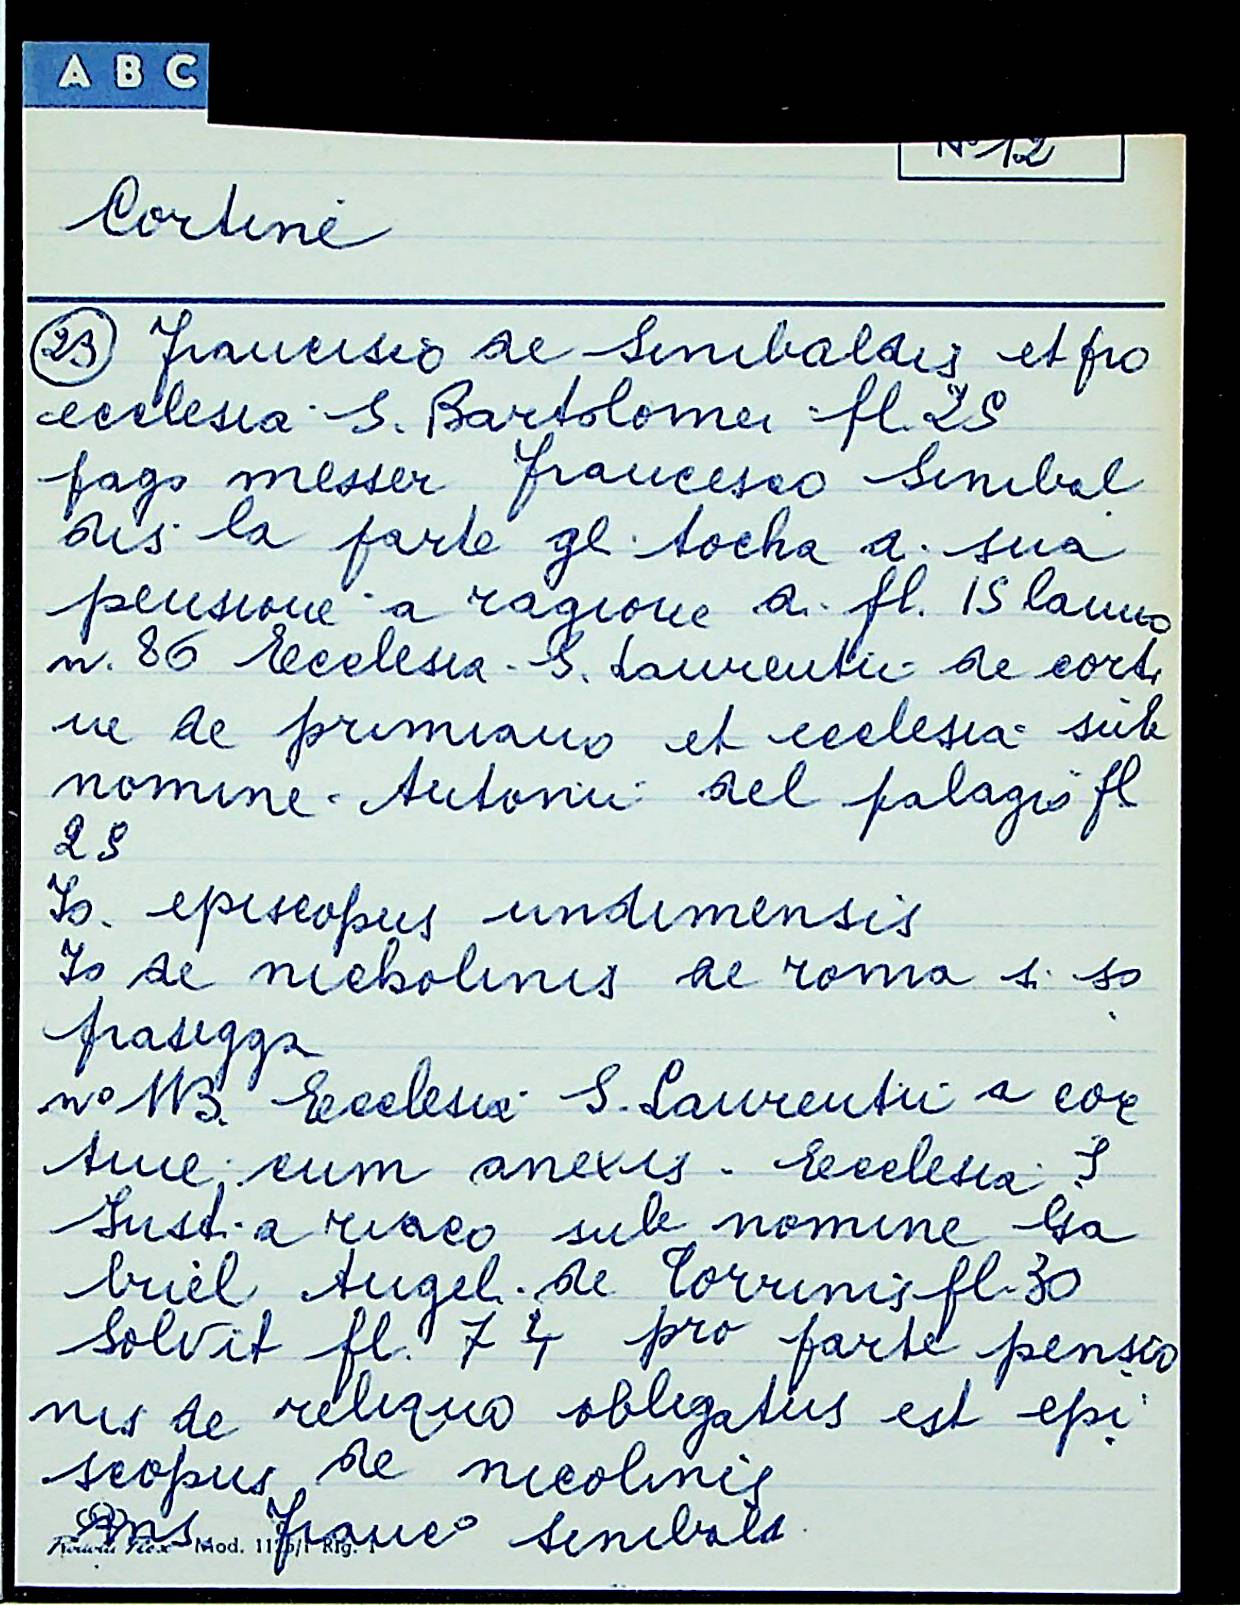 A B C
N° 12
Cortine
23 Francisco de Sinibaldis et pro
ecclesia S. Bartolomei fl. 25
pago messer Francesco Sinibal
dis la parte gl. tocha d. sua
pensione a ragione d. fl. 15 lanno
n. 86 Ecclesia S. Laurentii de corti
ne de primiano et ecclesia sub
nomine Antonii del palagio fl
25
Jo. episcopus undimensis
Jo de nicholinis de roma s. so
prasegga
n° 113. Ecclesia S. Laurentii a cor
tine cum anexis. Ecclesia S
Just. a ricico sub nomine Ga
briel Angel. de Torrinis fl. 30
Solvit fl. 7 pro parte pensio
nis de reliquo obligatus est epi
scopus de nicolinis
Franc° sinibald
Mod.